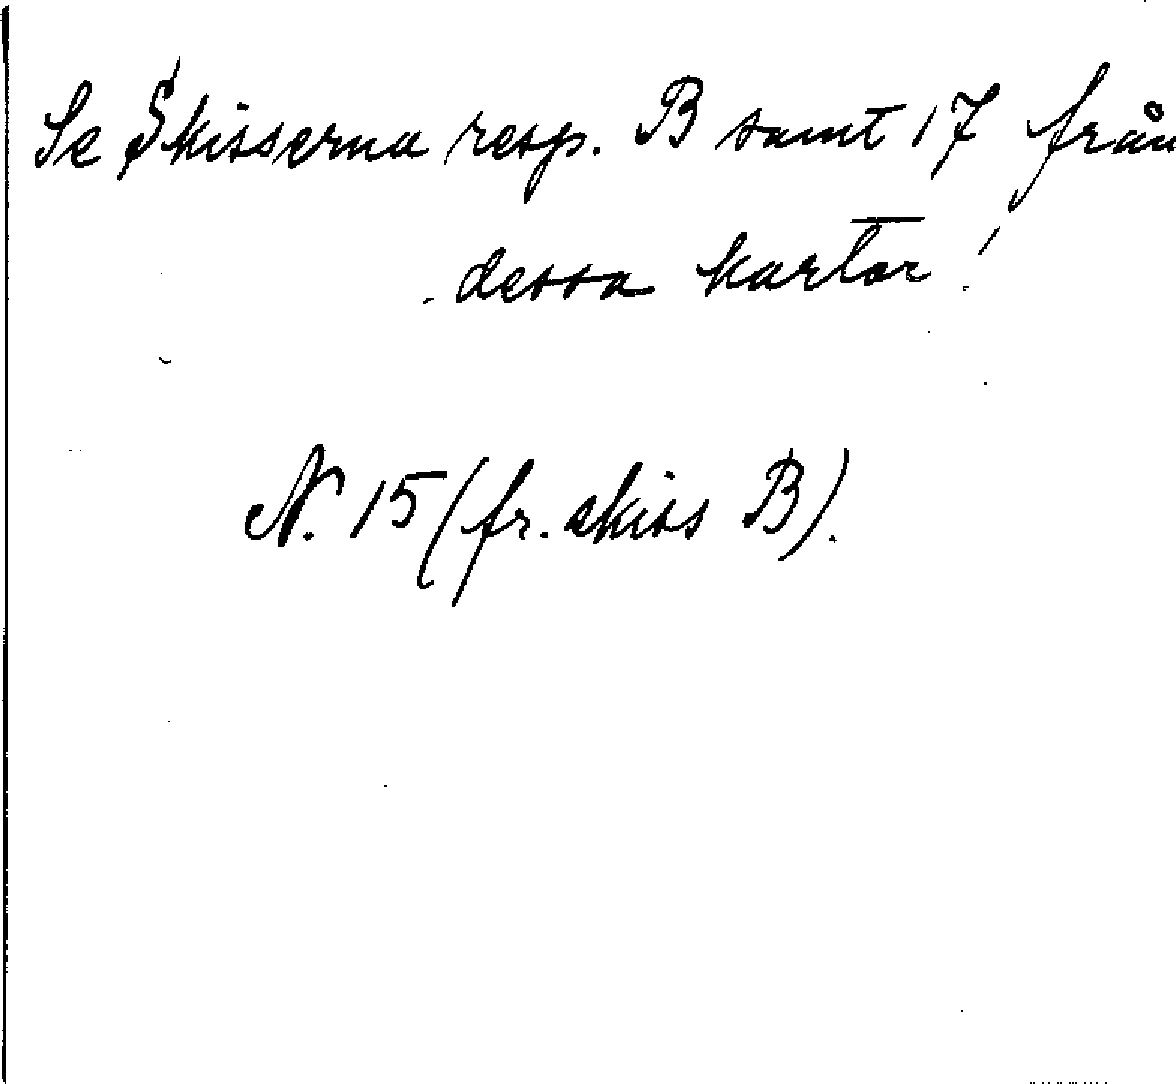 Se Skisserna resp. B samt 17 från
dessa kartor!
N. 15 (fr. skiss B).